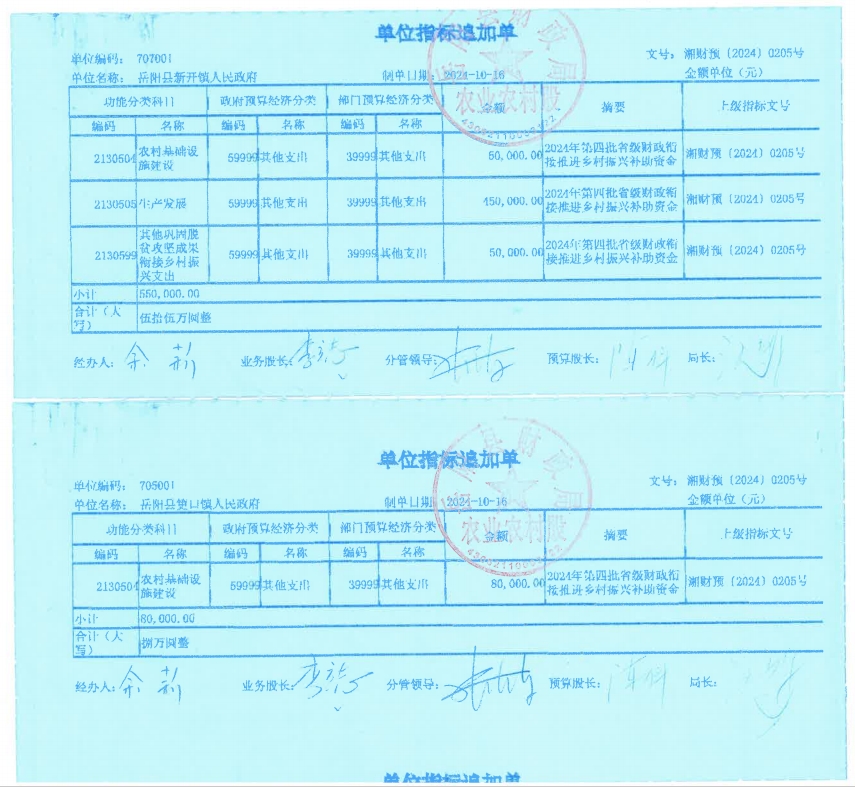 单位指标追加单
单位编码: 707001
文号: 湘财预〔2024〕0205号
单位名称: 岳阳县新开镇人民政府 制单日期: 2024-10-16 金额单位（元）
功能分类科目 政府预算经济分类 部门预算经济分类 金额 摘要 上级指标文号
编码 名称 编码 名称 编码 名称
2130504 农村基础设施建设 59999 其他支出 39999 其他支出 50,000.00 2024年第四批省级财政衔接推进乡村振兴补助资金 湘财预〔2024〕0205号
2130505 生产发展 59999 其他支出 39999 其他支出 450,000.00 2024年第四批省级财政衔接推进乡村振兴补助资金 湘财预〔2024〕0205号
2130599 其他巩固脱贫攻坚成果衔接乡村振兴支出 59999 其他支出 39999 其他支出 50,000.00 2024年第四批省级财政衔接推进乡村振兴补助资金 湘财预〔2024〕0205号
小计 550,000.00
合计（大写） 伍拾伍万圆整
经办人: 余新 业务股长: 分管领导: 预算股长: 局长:
农业农村股
单位指标追加单
单位编码: 705001
文号: 湘财预〔2024〕0205号
单位名称: 岳阳县筻口镇人民政府 制单日期: 2024-10-16 金额单位（元）
功能分类科目 政府预算经济分类 部门预算经济分类 金额 摘要 上级指标文号
编码 名称 编码 名称 编码 名称
2130504 农村基础设施建设 59999 其他支出 39999 其他支出 80,000.00 2024年第四批省级财政衔接推进乡村振兴补助资金 湘财预〔2024〕0205号
小计 80,000.00
合计（大写） 捌万圆整
经办人: 余新 业务股长: 分管领导: 预算股长: 局长:
县财政局
农业农村股
单位指标追加单